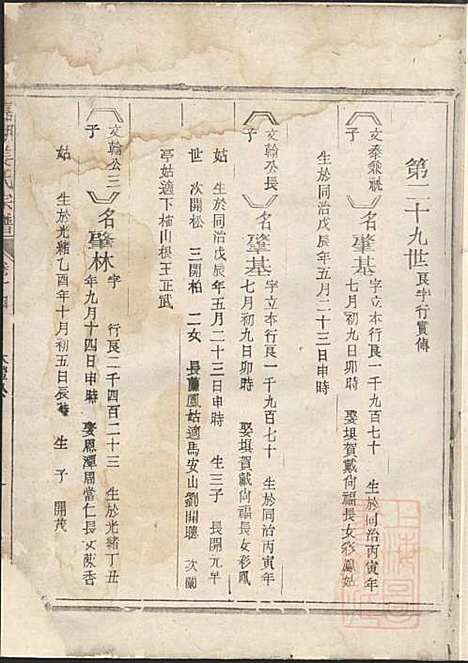 第二十九世 艮字行實傳
文泰兼祧子
名肇基 字立本行艮一千九百七十 生於同治丙寅年
七月初九日卯時 娶垻賀戴向福長女彩鳳姑
生於同治戊辰年五月二十三日申時
文翰公長子
名肇基 字立本行艮一千九百七十 生於同治丙寅年
七月初九日卯時 娶垻賀戴向福長女彩鳳
姑 生於同治戊辰年五月二十三日申時 生三子 長開元早
世 次開松 三開柏 二女 長蘭鳳姑適馬安山劉開聰 次蘭
亭姑適下楠山根王正武
文翰公三子
名肇林 字 行艮二千四百二十三 生於光緒丁丑
年九月十四日申時 娶恩潭周當仁長女陳香
姑 生於光緒乙酉年十月初五日辰時 生子 開茂
氏宗譜